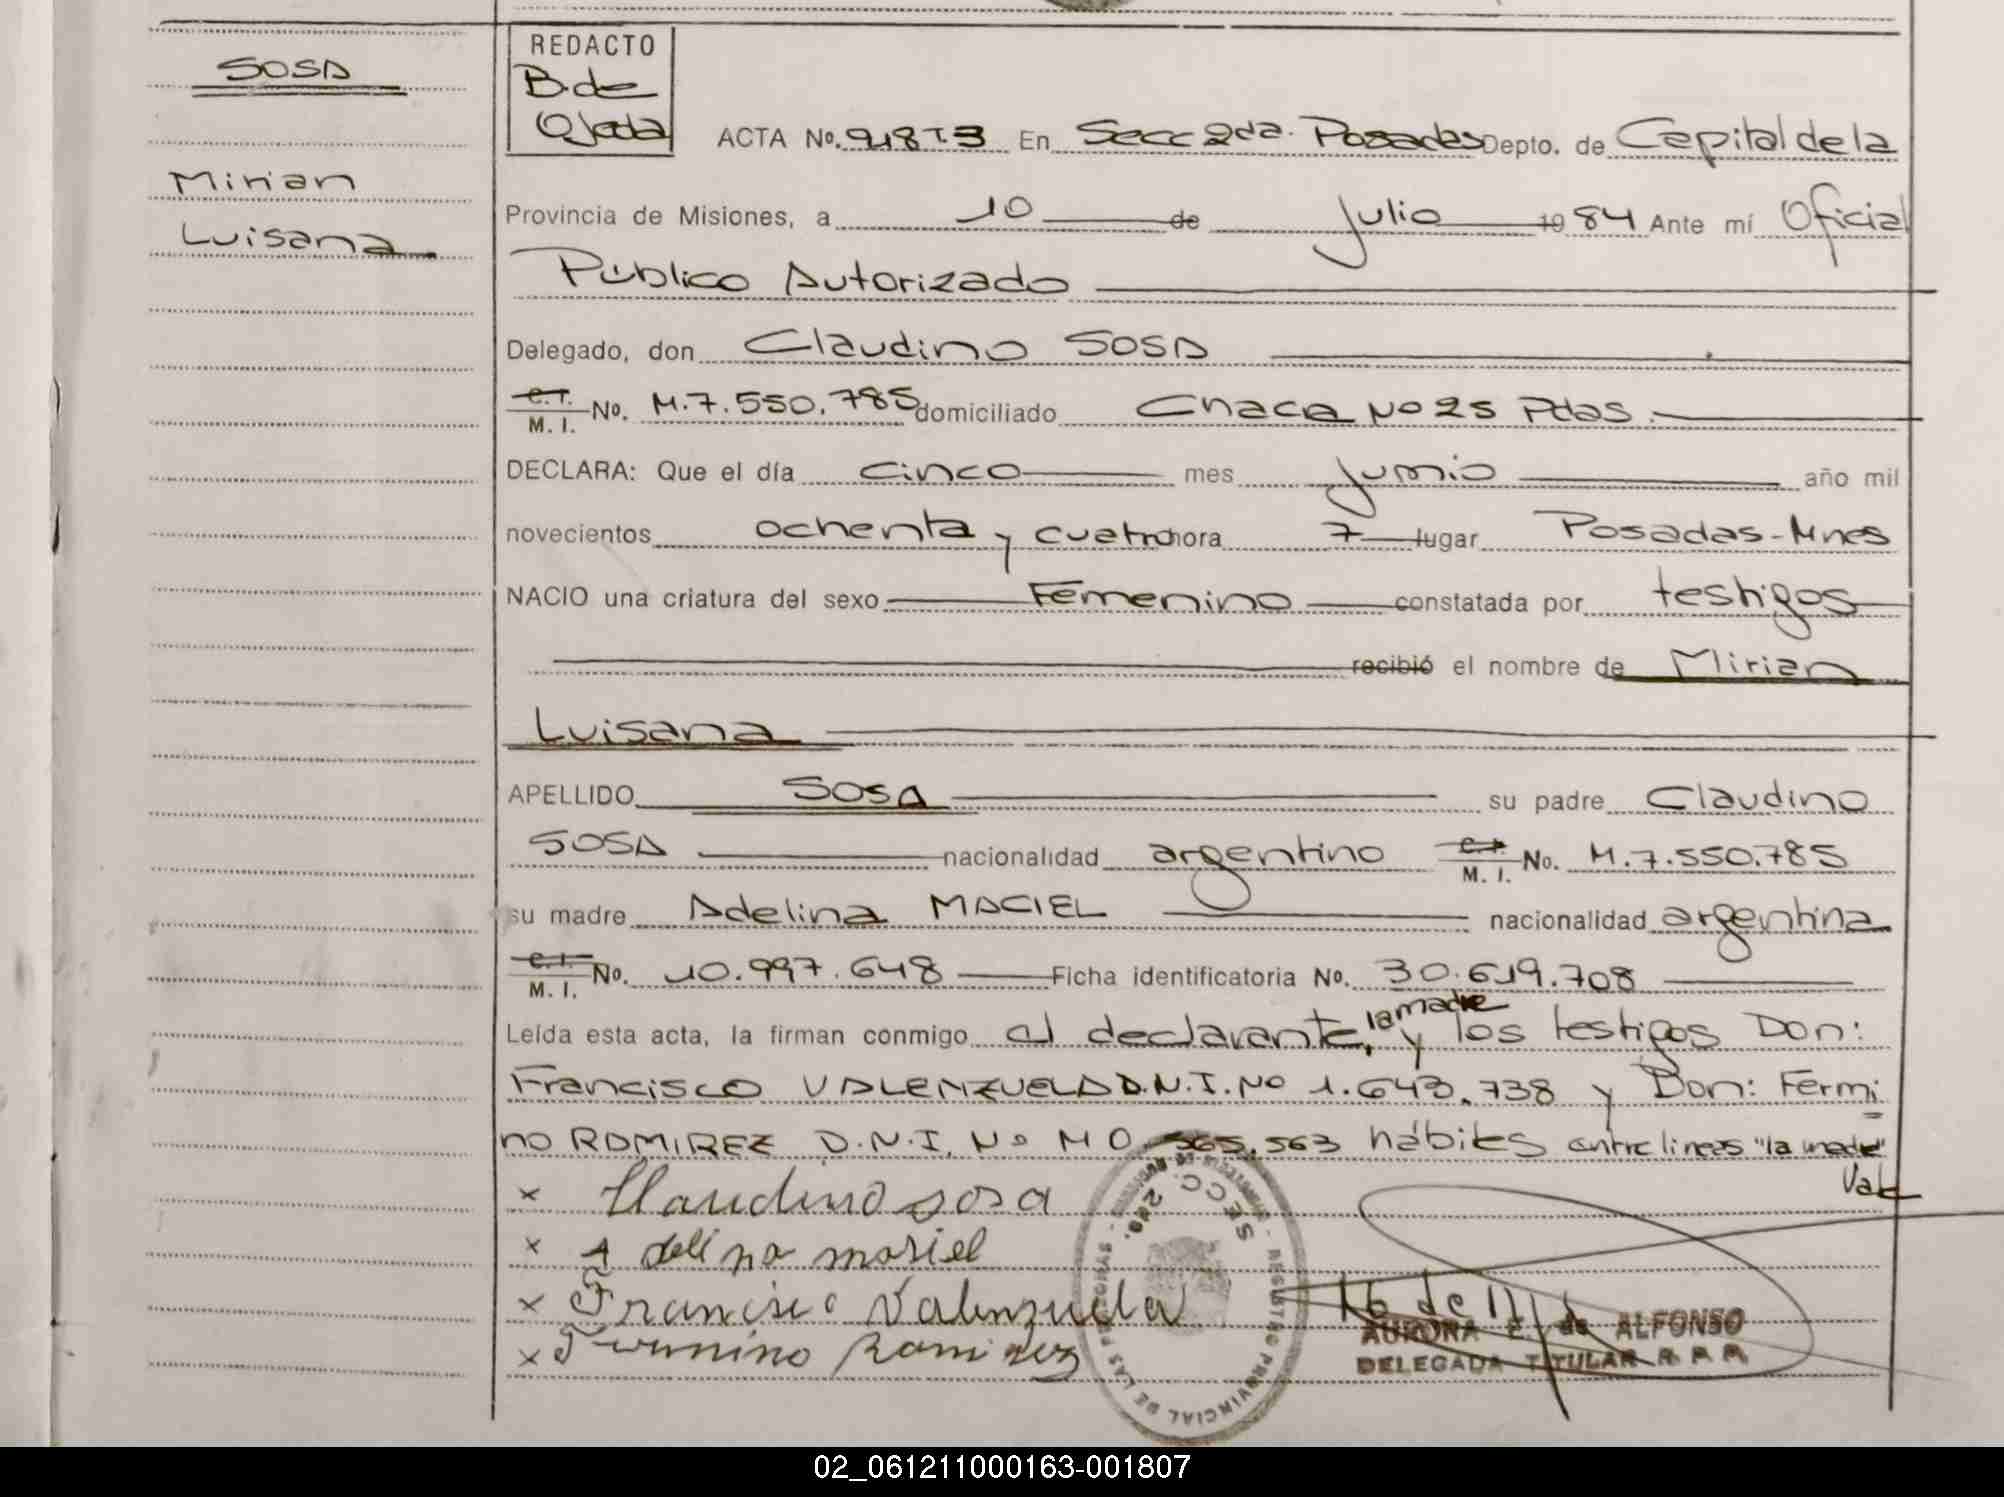 SOSA
Mirian
Luisana
REDACTO
B. de
Ojeda
ACTA No. 918 T.3 En Secc 2da. Posadas Depto. de Capital de la
Provincia de Misiones, a 10 de Julio 1984 Ante mí Oficial
Público Autorizado
Delegado, don Claudino SOSA
C.I. M. I. No. M.7.550.785 domiciliado Chaca No 25 Pdas.
DECLARA: Que el día cinco mes Junio año mil
novecientos ochenta y cuatro hora 7 lugar Posadas-Mnes
NACIO una criatura del sexo Femenino constatada por testigos
recibió el nombre de Mirian
Luisana
APELLIDO SOSA su padre Claudino
SOSA nacionalidad argentino C.I. M. I. No. M.7.550.785
su madre Adelina MACIEL nacionalidad argentina
C.I. M. I. No. 10.997.648 Ficha identificatoria No. 30.619.708
Leída esta acta, la firman conmigo el declarante, la madre y los testigos Don:
Francisco VALENZUELA D.N.I. No 1.643.738 y Don: Fermi
no RAMIREZ D.N.I. No M 0.565.563 hábiles entre lineas "la madre"
Vale
x Claudino sosa
x Adelina masiel
x Francisco Valenzuela
x Fermino Ramirez
REGISTRO PROVINCIAL DE LAS PERSONAS
SECC. 2da.
AURORA E. de ALFONSO
DELEGADA TITULAR
02_061211000163-001807